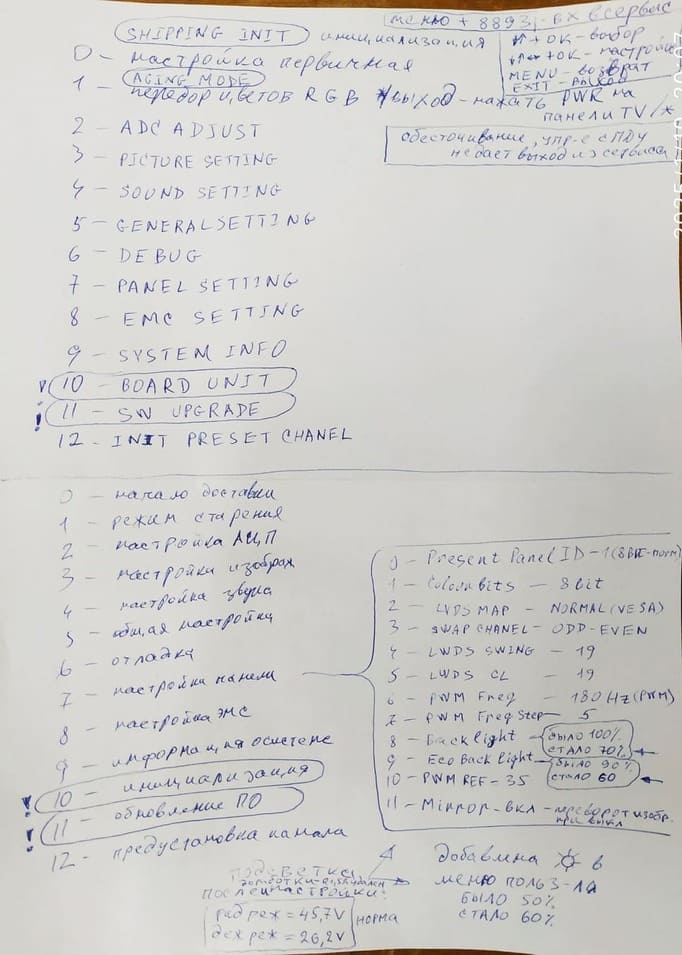 меню + 8893 - вх в сервис
SHIPPING INIT инициализация
0 - настройка первичная
↑↓ + OK - выбор
←→ + OK - настройка
MENU - возврат
EXIT - выход
1 - AGING MODE
перебор цветов RGB * выход - нажать PWR на
панели TV / *
2 - ADC ADJUST
обесточивание, упр-е с ПДУ
не дает выход из сервиса
3 - PICTURE SETTING
4 - SOUND SETTING
5 - GENERAL SETTING
6 - DEBUG
7 - PANEL SETTING
8 - EMC SETTING
9 - SYSTEM INFO
! 10 - BOARD UNIT
! 11 - SW UPGRADE
12 - INIT PRESET CHANEL
0 - начало доставки
1 - режим старения
2 - настройка АЦП
3 - настройки изображ
4 - настройка звука
5 - общая настройка
6 - отладка
7 - настройка панели
8 - настройка ЭМС
9 - информация о системе
! 10 - инициализация
! 11 - обновление ПО
12 - предустановка канала
0 - Present Panel ID - 1 (8BIT-norm)
1 - Colour bits - 8 bit
2 - LVDS MAP - NORMAL (VESA)
3 - SWAP CHANEL - ODD-EVEN
4 - LWDS SWING - 19
5 - LWDS CL - 19
6 - PWM Freq - 180 Hz (PWM)
7 - PWM Freq Step - 5
8 - Back light - было 100%
стало 70% ←
9 - Eco Back light - было 90%
стало 60 ←
10 - PWM REF - 35
11 - Mirror - вкл - переворот изобр.
при выкл
подсветка
после настройки:
раб реж = 45,7V
деж реж = 26,2V
норма
добавлена ☼ в
меню польз-ля
было 50%
стало 60%